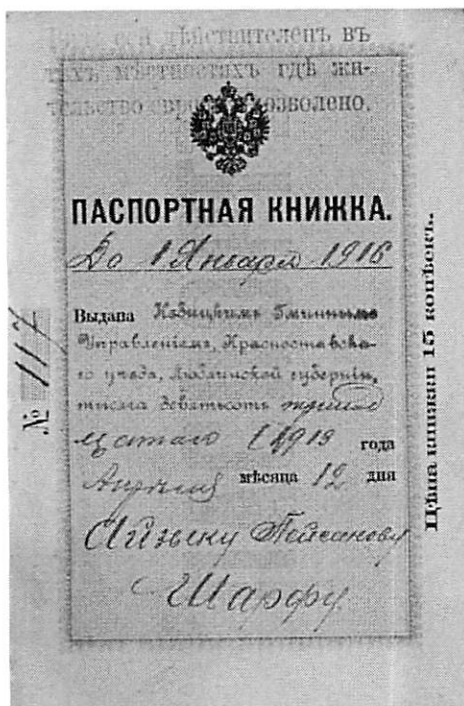 дѣйствителенъ въ
тѣхъ мѣстностяхъ гдѣ жи-
тельство евреямъ дозволено.
ПАСПОРТНАЯ КНИЖКА.
До 1 Января 1916
Выдана Избицкимъ Гминнымъ
Управленіемъ, Красноставска-
го уѣзда, Люблинской губерніи,
тысяча девятьсотъ
1919 года
Апрѣля мѣсяца 12 дня
Пейсахову
Шарфу
№ 117
Цѣна книжки 15 копѣекъ.